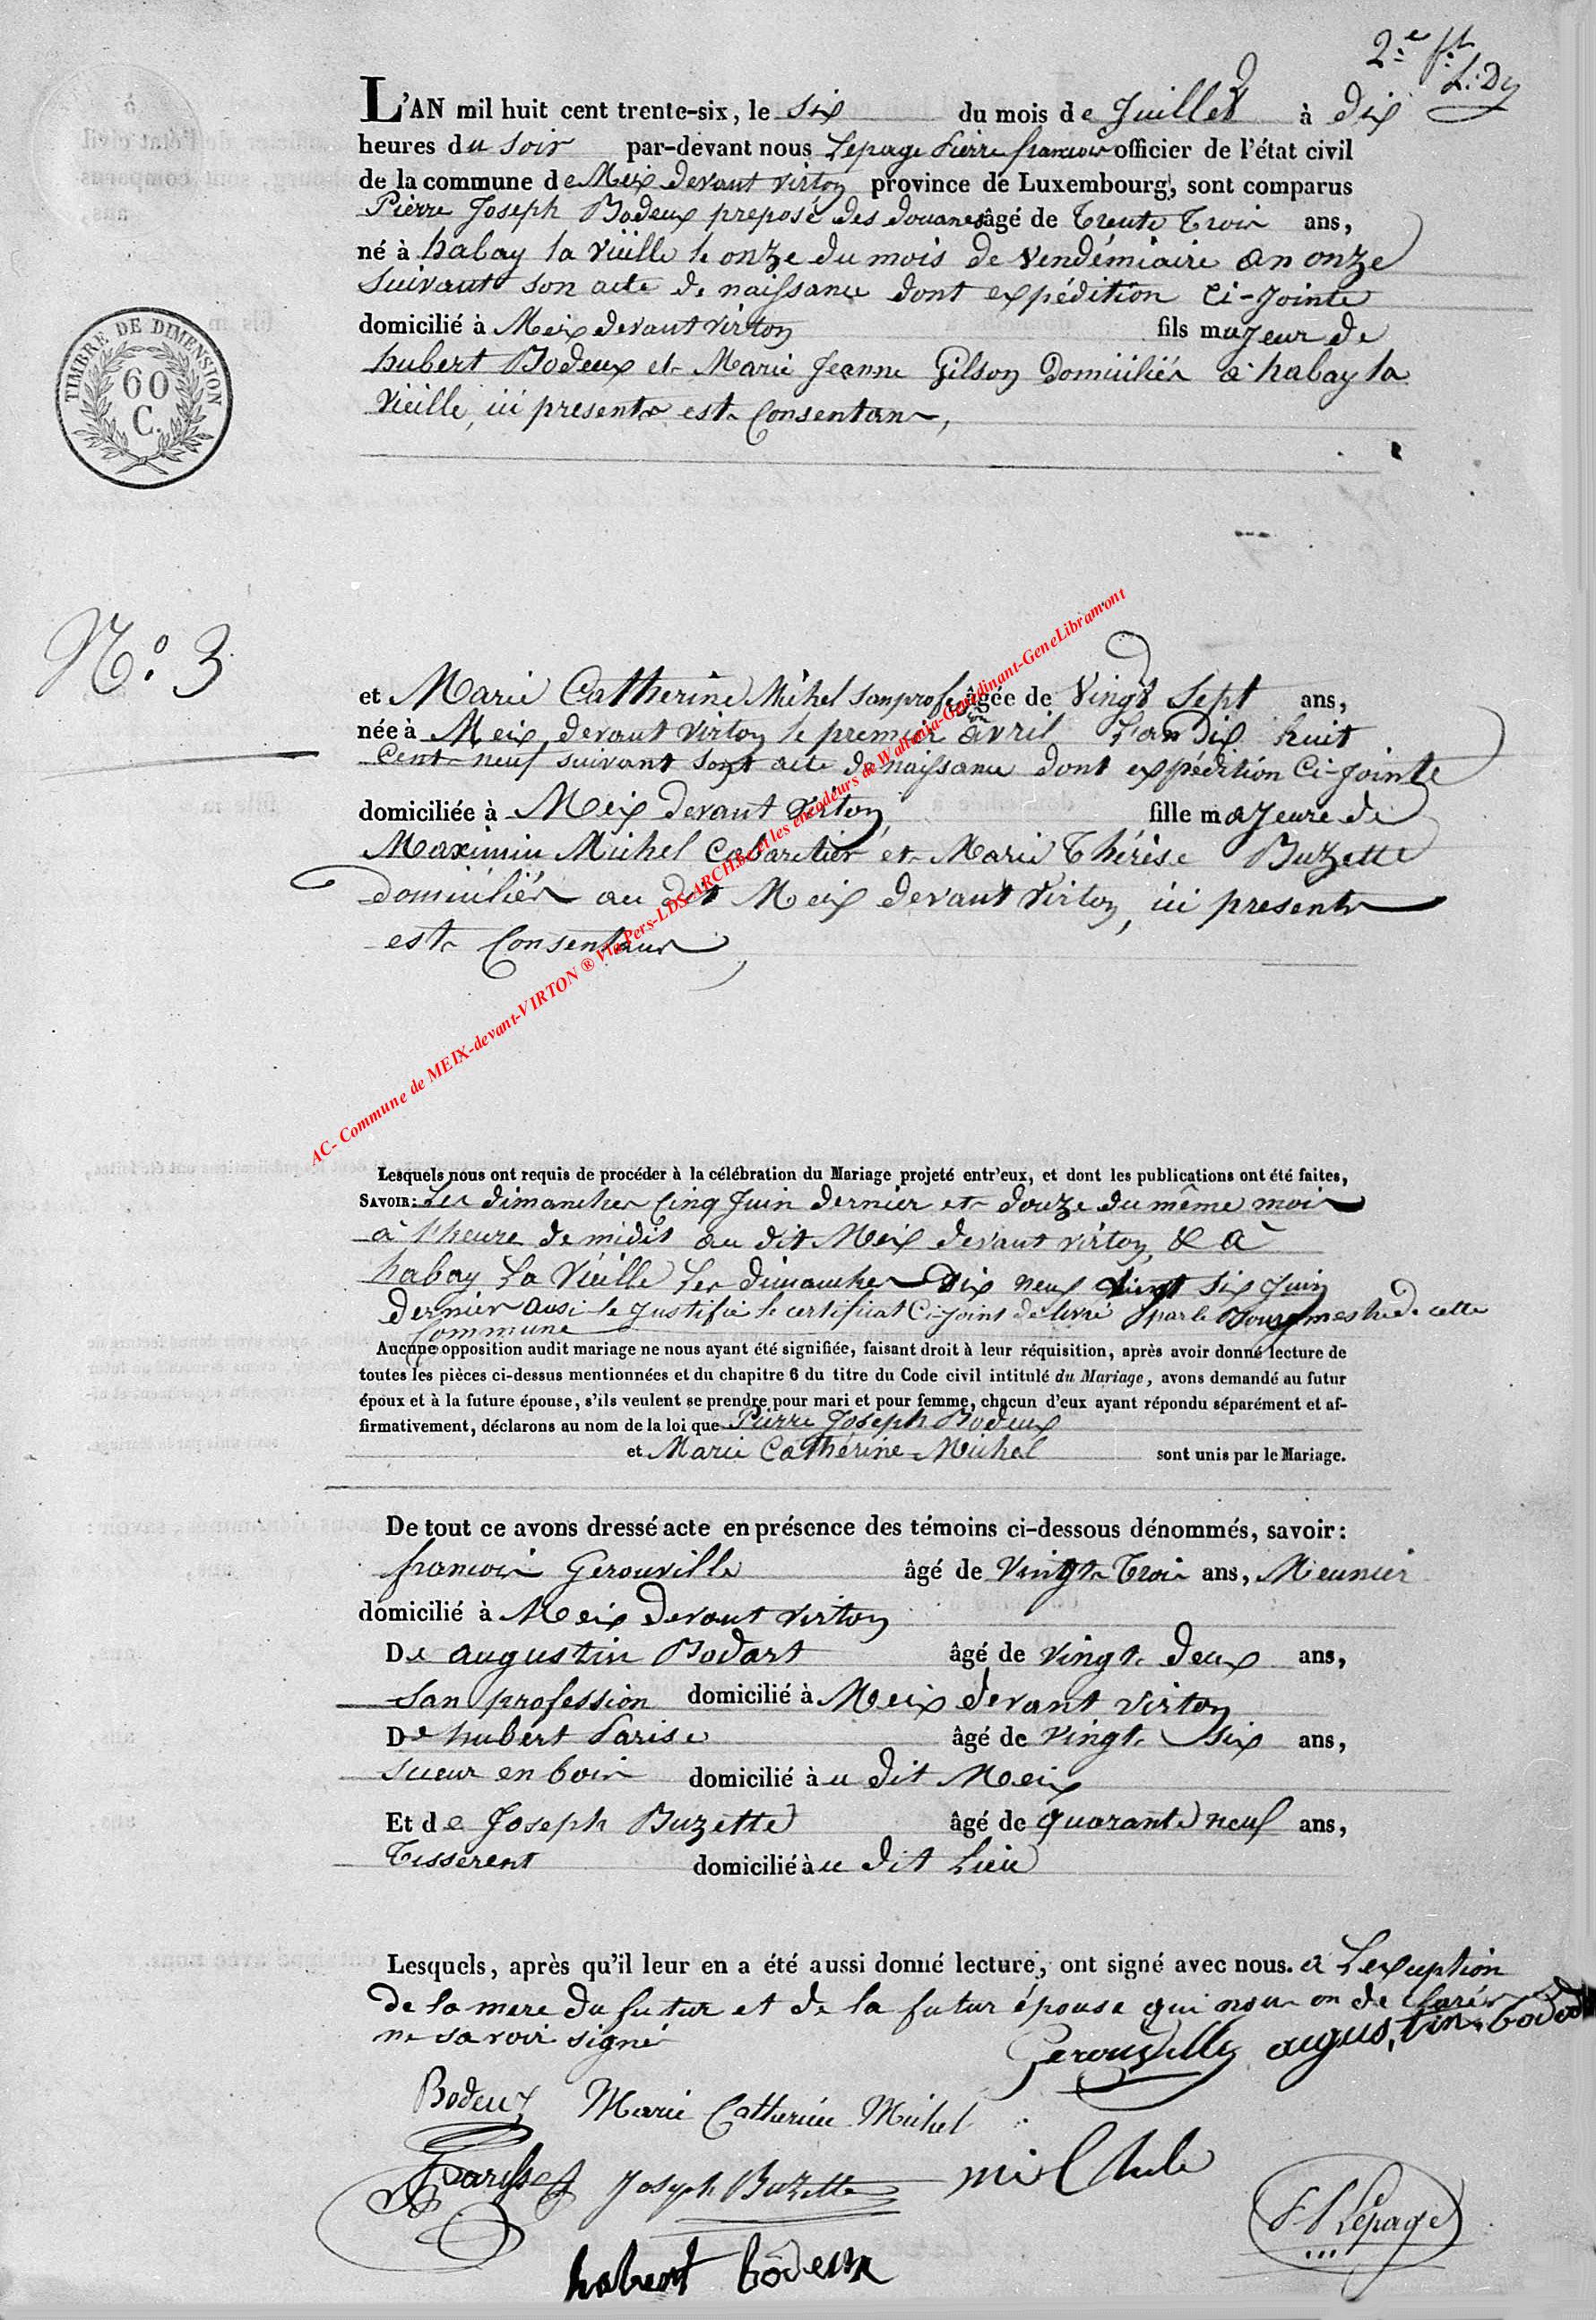 2.e ft
L: Dy
L'AN mil huit cent trente-six, le Six du mois de Juillet à dix
heures du Soir par-devant nous Lepage Pierre françois officier de l'état civil
de la commune de Meix devant virton province de Luxembourg, sont comparus
Pierre Joseph Bodeux preposé des douanes âgé de Trente Trois ans,
né à habay la Vieille le onze du mois de Vendémiaire an onze
Suivant son acte de naissance dont expédition Ci-jointe
domicilié à Meix devant virton fils majeur de
hubert Bodeux et Marie Jeanne Gilson Domiciliés à habay la
Vieille, ici presents est Consentans,
TIMBRE DE DIMENSION
60
C.
N.o 3
et Marie Catherine Michel sans profession âgée de Vingt Sept ans,
née à Meix devant virton le premier avril L'an dix huit
Cent neuf suivant sont acte de naissance dont expédition Ci-jointe
domiciliée à Meix devant virton fille majeure de
Maximin Michel Cabaretier et Marie Thérèse Buzette
domiciliés au dit Meix devant Virton, ici presents
est Consentans,
AC- Commune de MEIX-devant-VIRTON ® Via Pers-LDS-ARCH.be et les encodeurs de Wallonia-Genedinant-GeneLibramont
Lesquels nous ont requis de procéder à la célébration du Mariage projeté entr'eux, et dont les publications ont été faites,
SAVOIR: Les dimanches Cinq Juin dernier et douze du même mois
à l'heure de midit au dit Meix devant virton, & à
habay La Vieille Les dimanches Dix neuf vingt six Juin
dernier ausi le justifie le certificat Ci-joint delivré par le Bourgmestre de cette
Commune
Aucune opposition audit mariage ne nous ayant été signifiée, faisant droit à leur réquisition, après avoir donné lecture de
toutes les pièces ci-dessus mentionnées et du chapitre 6 du titre du Code civil intitulé du Mariage, avons demandé au futur
époux et à la future épouse, s'ils veulent se prendre pour mari et pour femme, chacun d'eux ayant répondu séparément et af-
firmativement, déclarons au nom de la loi que Pierre Joseph Bodeux
et Marie Cathérine Michel sont unis par le Mariage.
De tout ce avons dressé acte en présence des témoins ci-dessous dénommés, savoir:
françois Gerouville âgé de Vingt Trois ans, Meunier
domicilié à Meix devant virton
De augustin Bodart âgé de vingt deux ans,
San profession domicilié à Meix devant virton
De hubert Parise âgé de vingt Six ans,
Sieur en bois domicilié à u dit Meix
Et de Joseph Buzette âgé de quarante neuf ans,
Tisserent domicilié à u dit Lieu
Lesquels, après qu'il leur en a été aussi donné lecture, ont signé avec nous. a L'exception
de la mere du futur et de la futur épouse qui nous on de clarés
ne savoir signé
Gerouville augustin bodart
Bodeux Marie Catherine Michel
Parisse Joseph Buzette
hubert bôdeux
F P Lepage